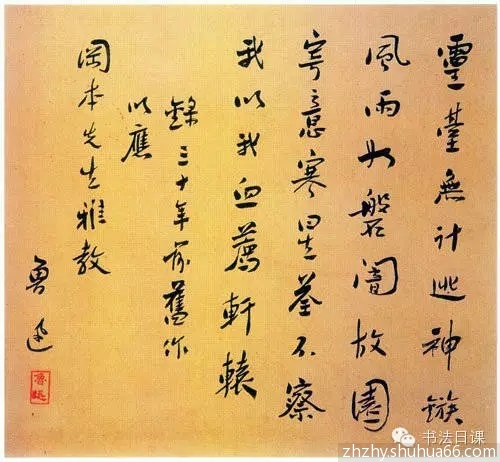 靈臺無計逃神鏃
風雨如磐闇故園
寄意寒星荃不察
我以我血薦軒轅
錄三十年前舊作
以應
岡本先生雅教
魯迅
魯迅
书法日课
zhzhyshuhua66.com